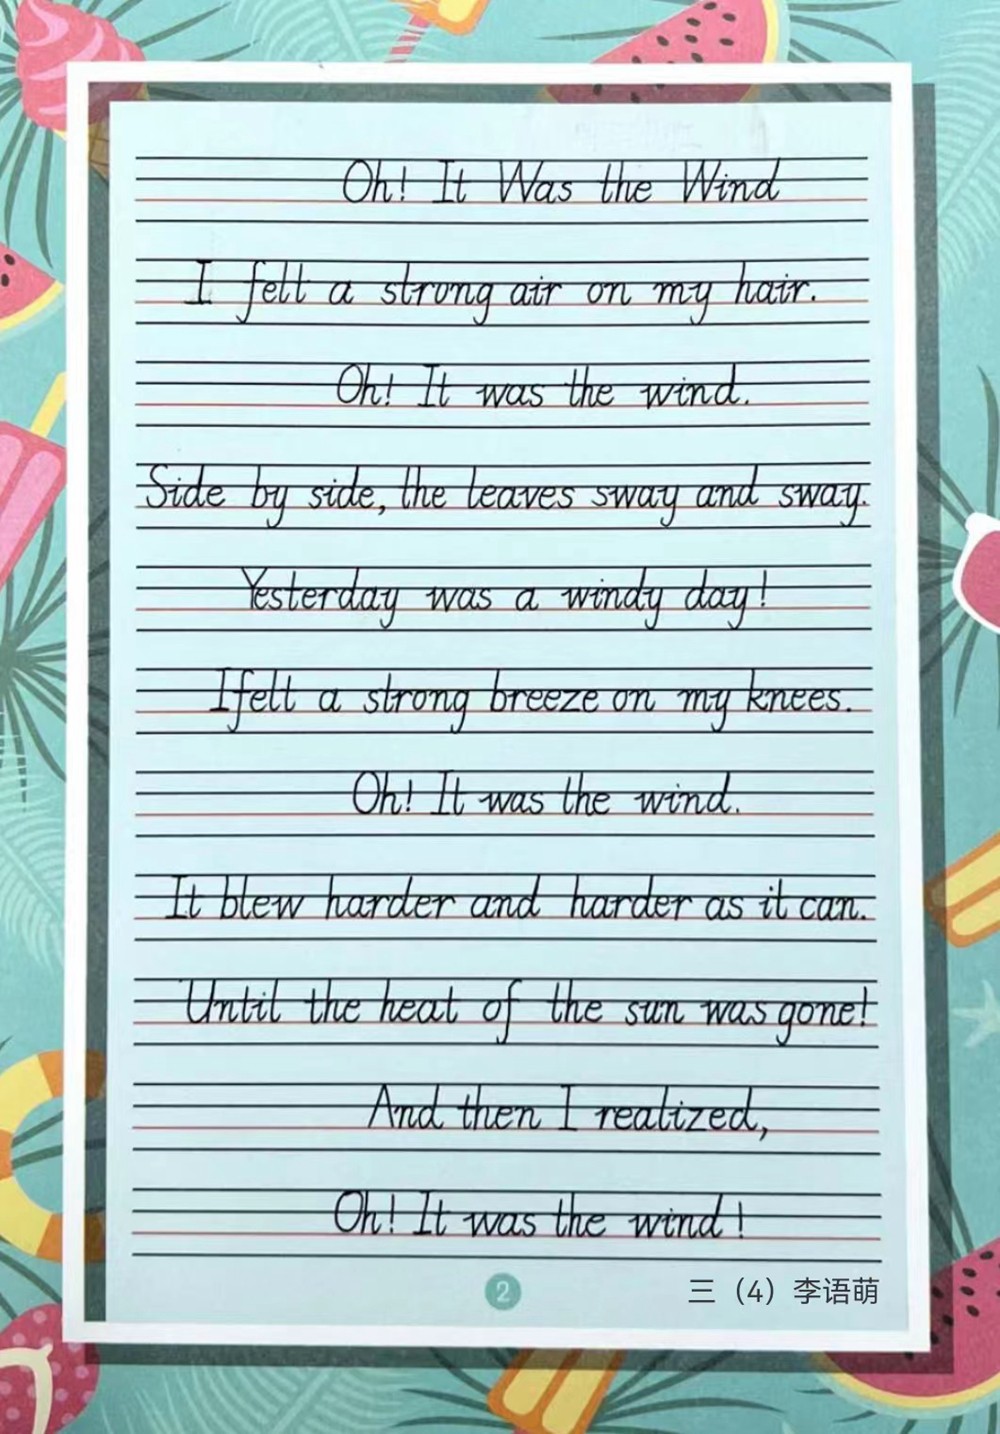 Oh! It Was the Wind
I felt a strong air on my hair.
Oh! It was the wind.
Side by side, the leaves sway and sway.
Yesterday was a windy day!
I felt a strong breeze on my knees.
Oh! It was the wind.
It blew harder and harder as it can.
Until the heat of the sun was gone!
And then I realized,
Oh! It was the wind!
2
三（4）李语萌